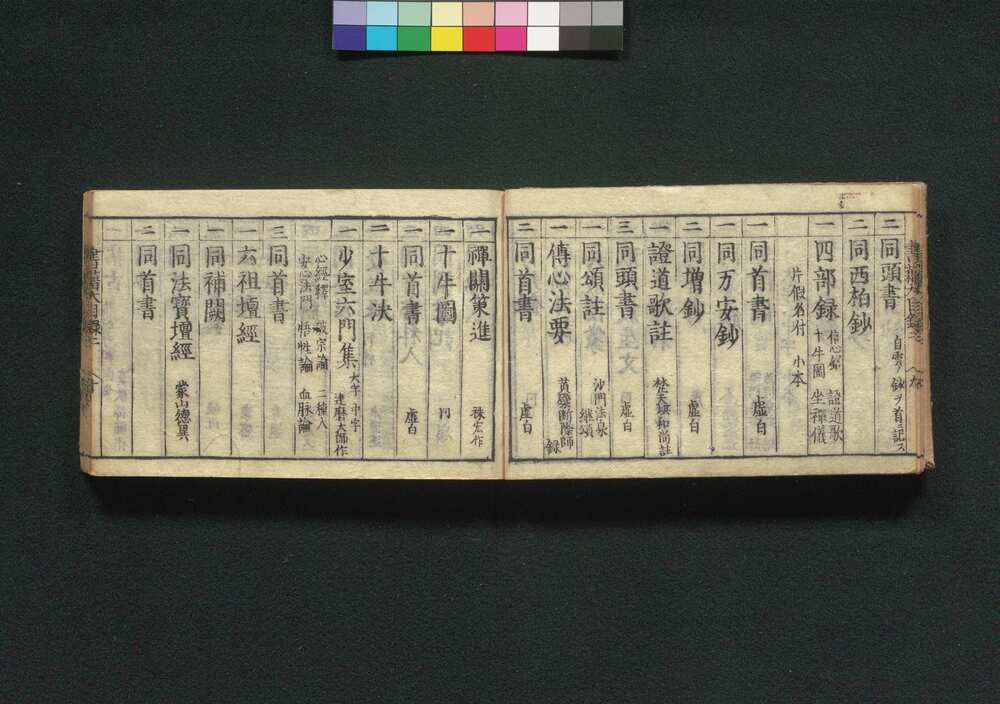 二 同頭書 自雲ノ鈔ヲ首ニ記ス
二 同西柏鈔
一 四部録 信心銘 證道歌 十牛圖 坐禪儀
片假名付 小本
一 同首書 虚白
一 同万安鈔
二 同増鈔 虚白
一 證道歌註 梵天琪和尚註
三 同頭書 虚白
一 同頌註 沙門法泉継頌
一 傳心法要 黄檗断際師録
二 同首書 虚白
禪關策進 袾宏作
一 十牛圖 同
一 同首書 虚白
二 十牛决
一 少室六門集 大字 中字 達磨大師作
一 心經釋 破宗論 二種入 安心法門 悟性論 血脉論
三 同首書
一 六祖壇經
一 同補闕
一 同法寶壇經 蒙山徳異
二 同首書